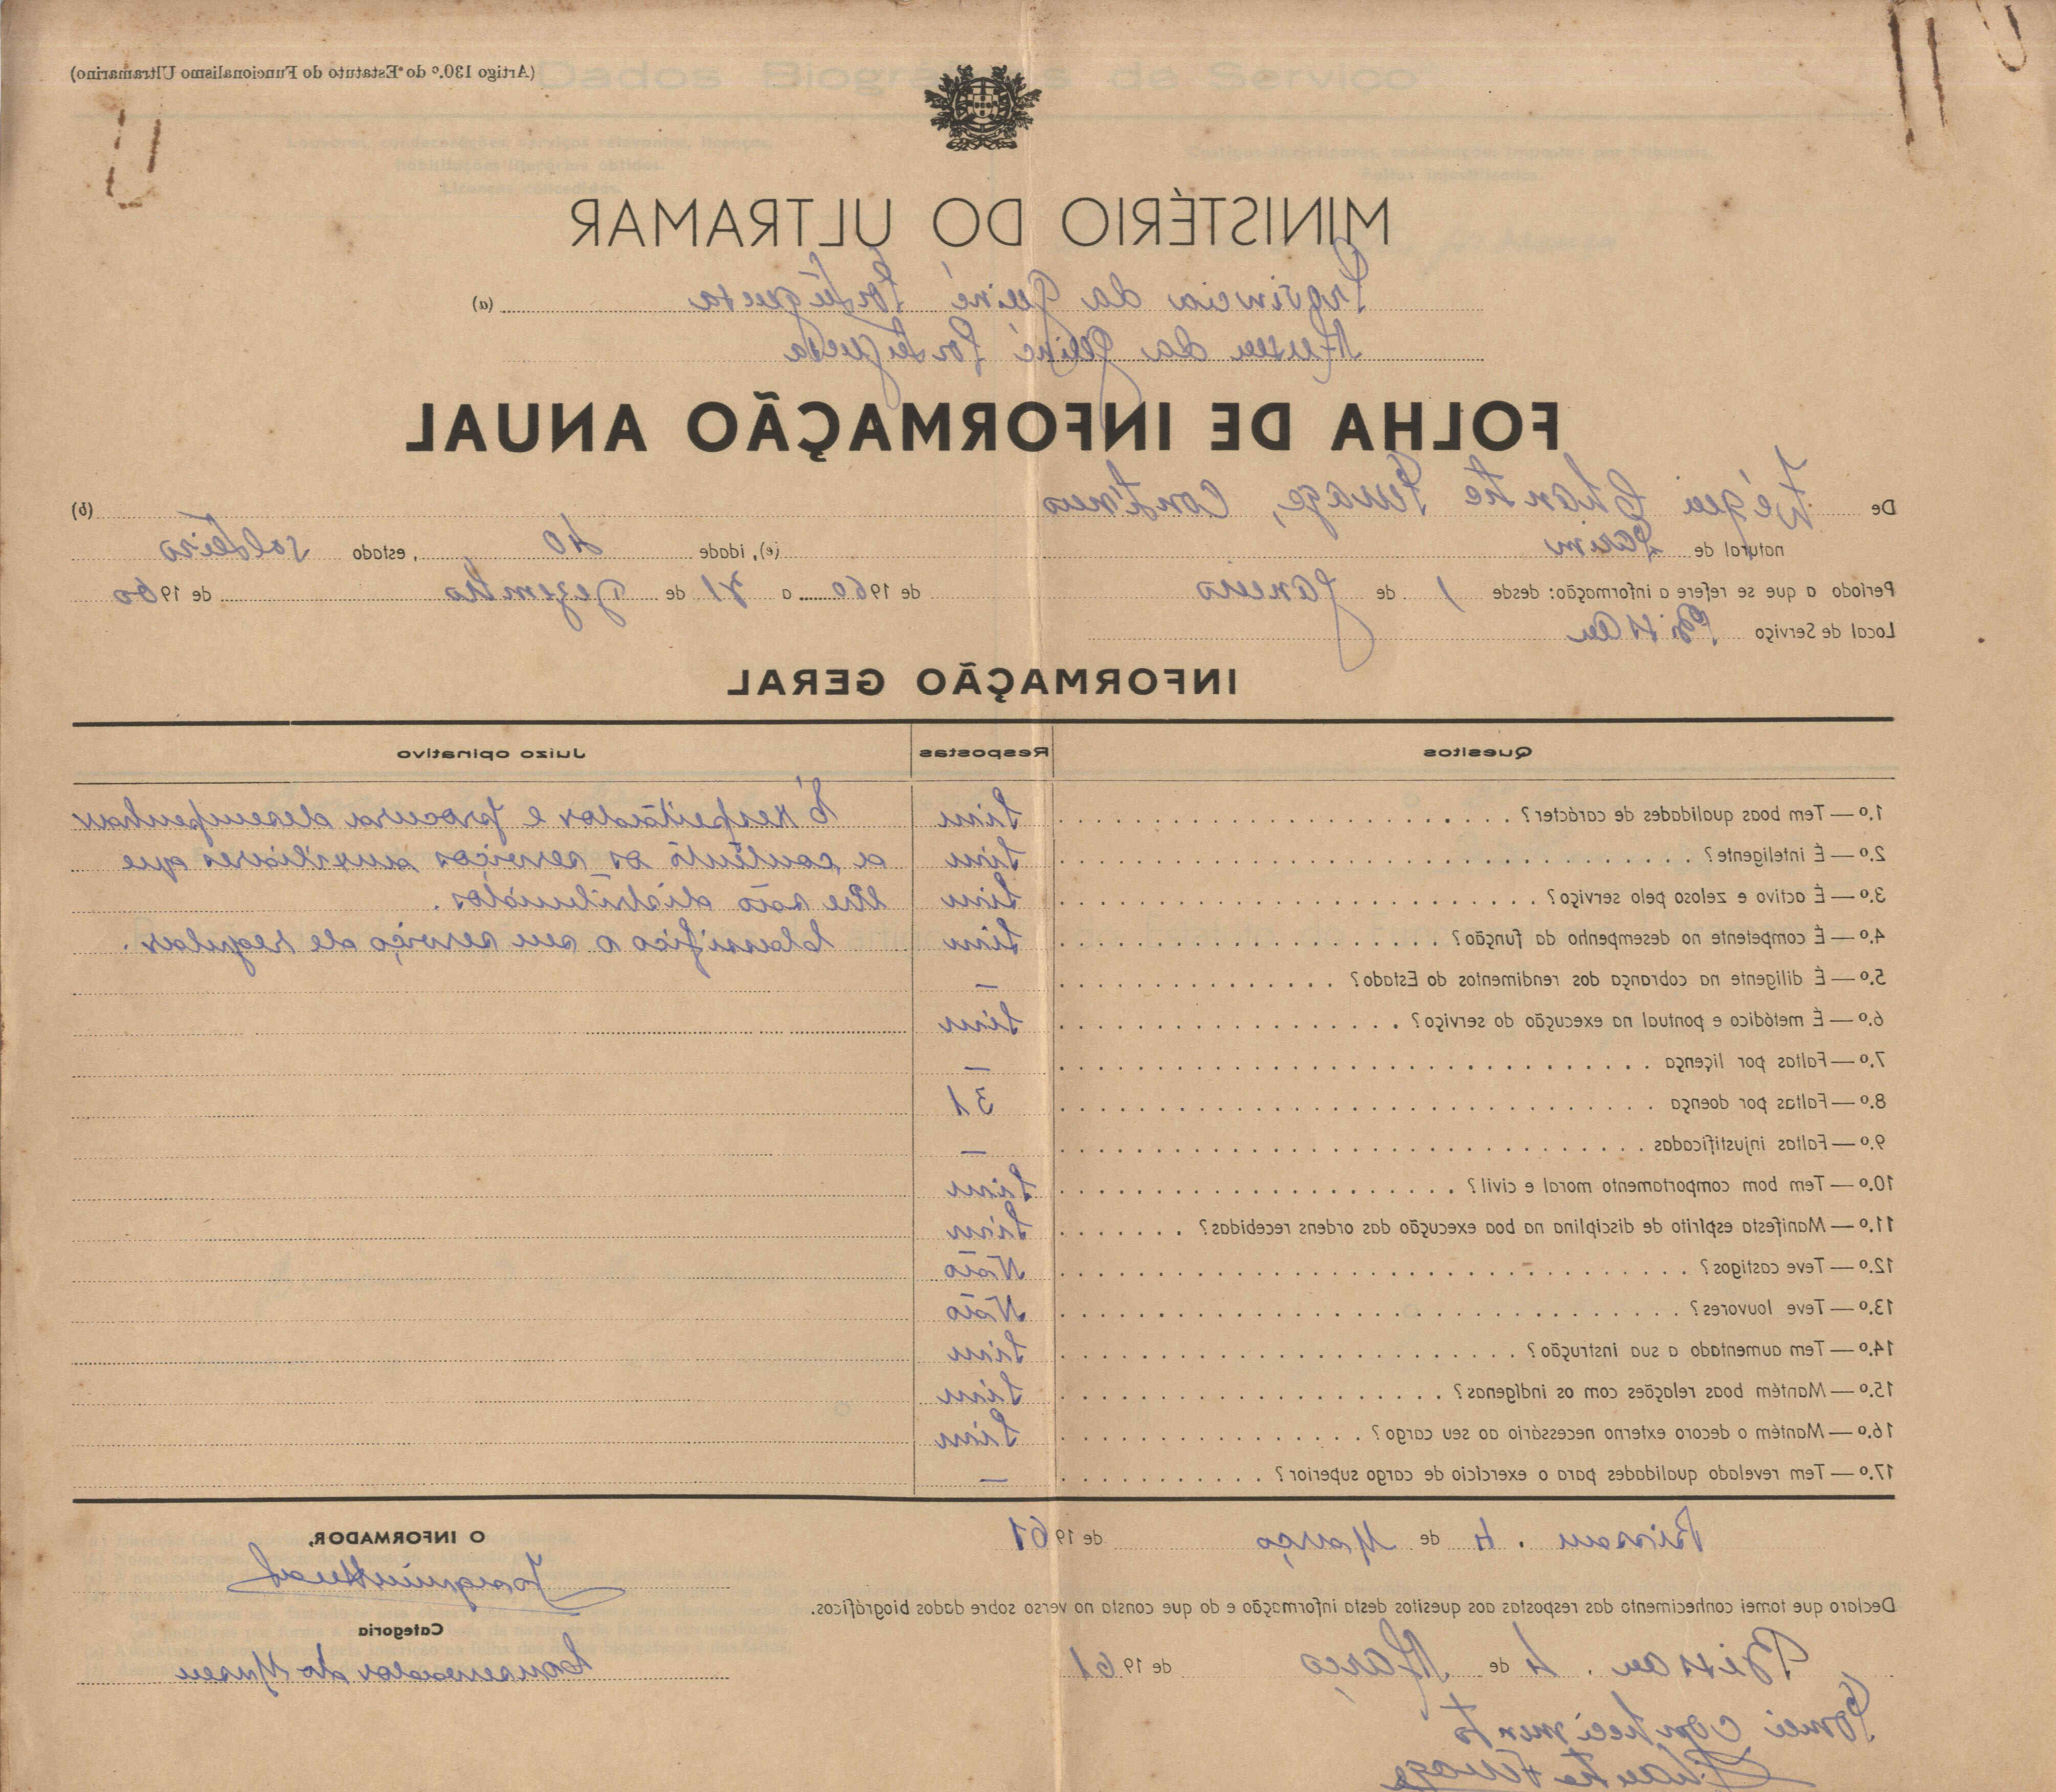 (Artigo 130.º do Estatuto do Funcionalismo Ultramarino)
MINISTÉRIO DO ULTRAMAR
Provincia da Guiné Portuguesa (a)
Museu da Guiné Portuguesa
FOLHA DE INFORMAÇÃO ANUAL
De Chante Furage, Continuo (b)
natural de Farim (c), idade 40, estado solteiro
Período a que se refere a informação: desde 1 de Janeiro de 1960 a 31 de Dezembro de 1960
Local de Serviço Bissau
INFORMAÇÃO GERAL
Quesitos Respostas Juízo opinativo
1.º — Tem boas qualidades de carácter? Sim É respeitador e procura desempenhar
2.º — É inteligente? Sim a contento os serviços auxiliares que
3.º — É activo e zeloso pelo serviço? Sim lhe são distribuidos.
4.º — É competente no desempenho da função? Sim Classifico o seu serviço de regular.
5.º — É diligente na cobrança dos rendimentos do Estado? —
6.º — É metódico e pontual na execução do serviço? Sim
7.º — Faltas por liçença —
8.º — Faltas por doença 31
9.º — Faltas injustificadas —
10.º — Tem bom comportamento moral e civil? Sim
11.º — Manifesta espírito de disciplina na boa execução das ordens recebidas? Sim
12.º — Teve castigos? Não
13.º — Teve louvores? Não
14.º — Tem aumentado a sua instrução? Sim
15.º — Mantém boas relações com os indígenas? Sim
16.º — Mantém o decoro externo necessário ao seu cargo? Sim
17.º — Tem revelado qualidades para o exercício de cargo superior? —
Bissau. 4 de Março de 1961
O INFORMADOR,
Declaro que tomei conhecimento das respostas aos quesitos desta informação e do que consta no verso sobre dados biográficos.
Categoria
Bissau. 4 de Março de 1961
Conservador do Museu
Tomei conhecimento
Chante Furage